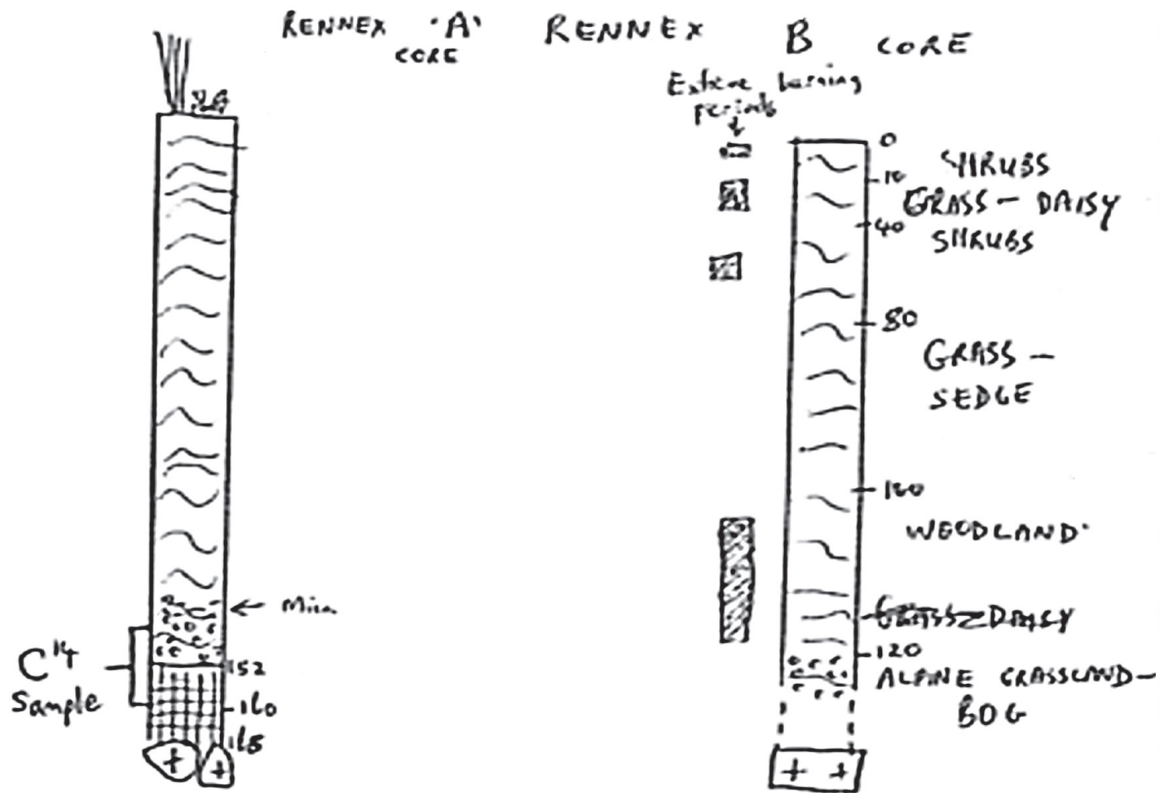 RENNEX 'A' CORE
RENNEX B CORE
Extreme burning
periods
0
SHRUBS
10
GRASS - DAISY
40
SHRUBS
80
GRASS -
SEDGE
160
WOODLAND
GRASS-DAISY
120
ALPINE GRASSLAND -
BOG
C14
Sample
152
160
165